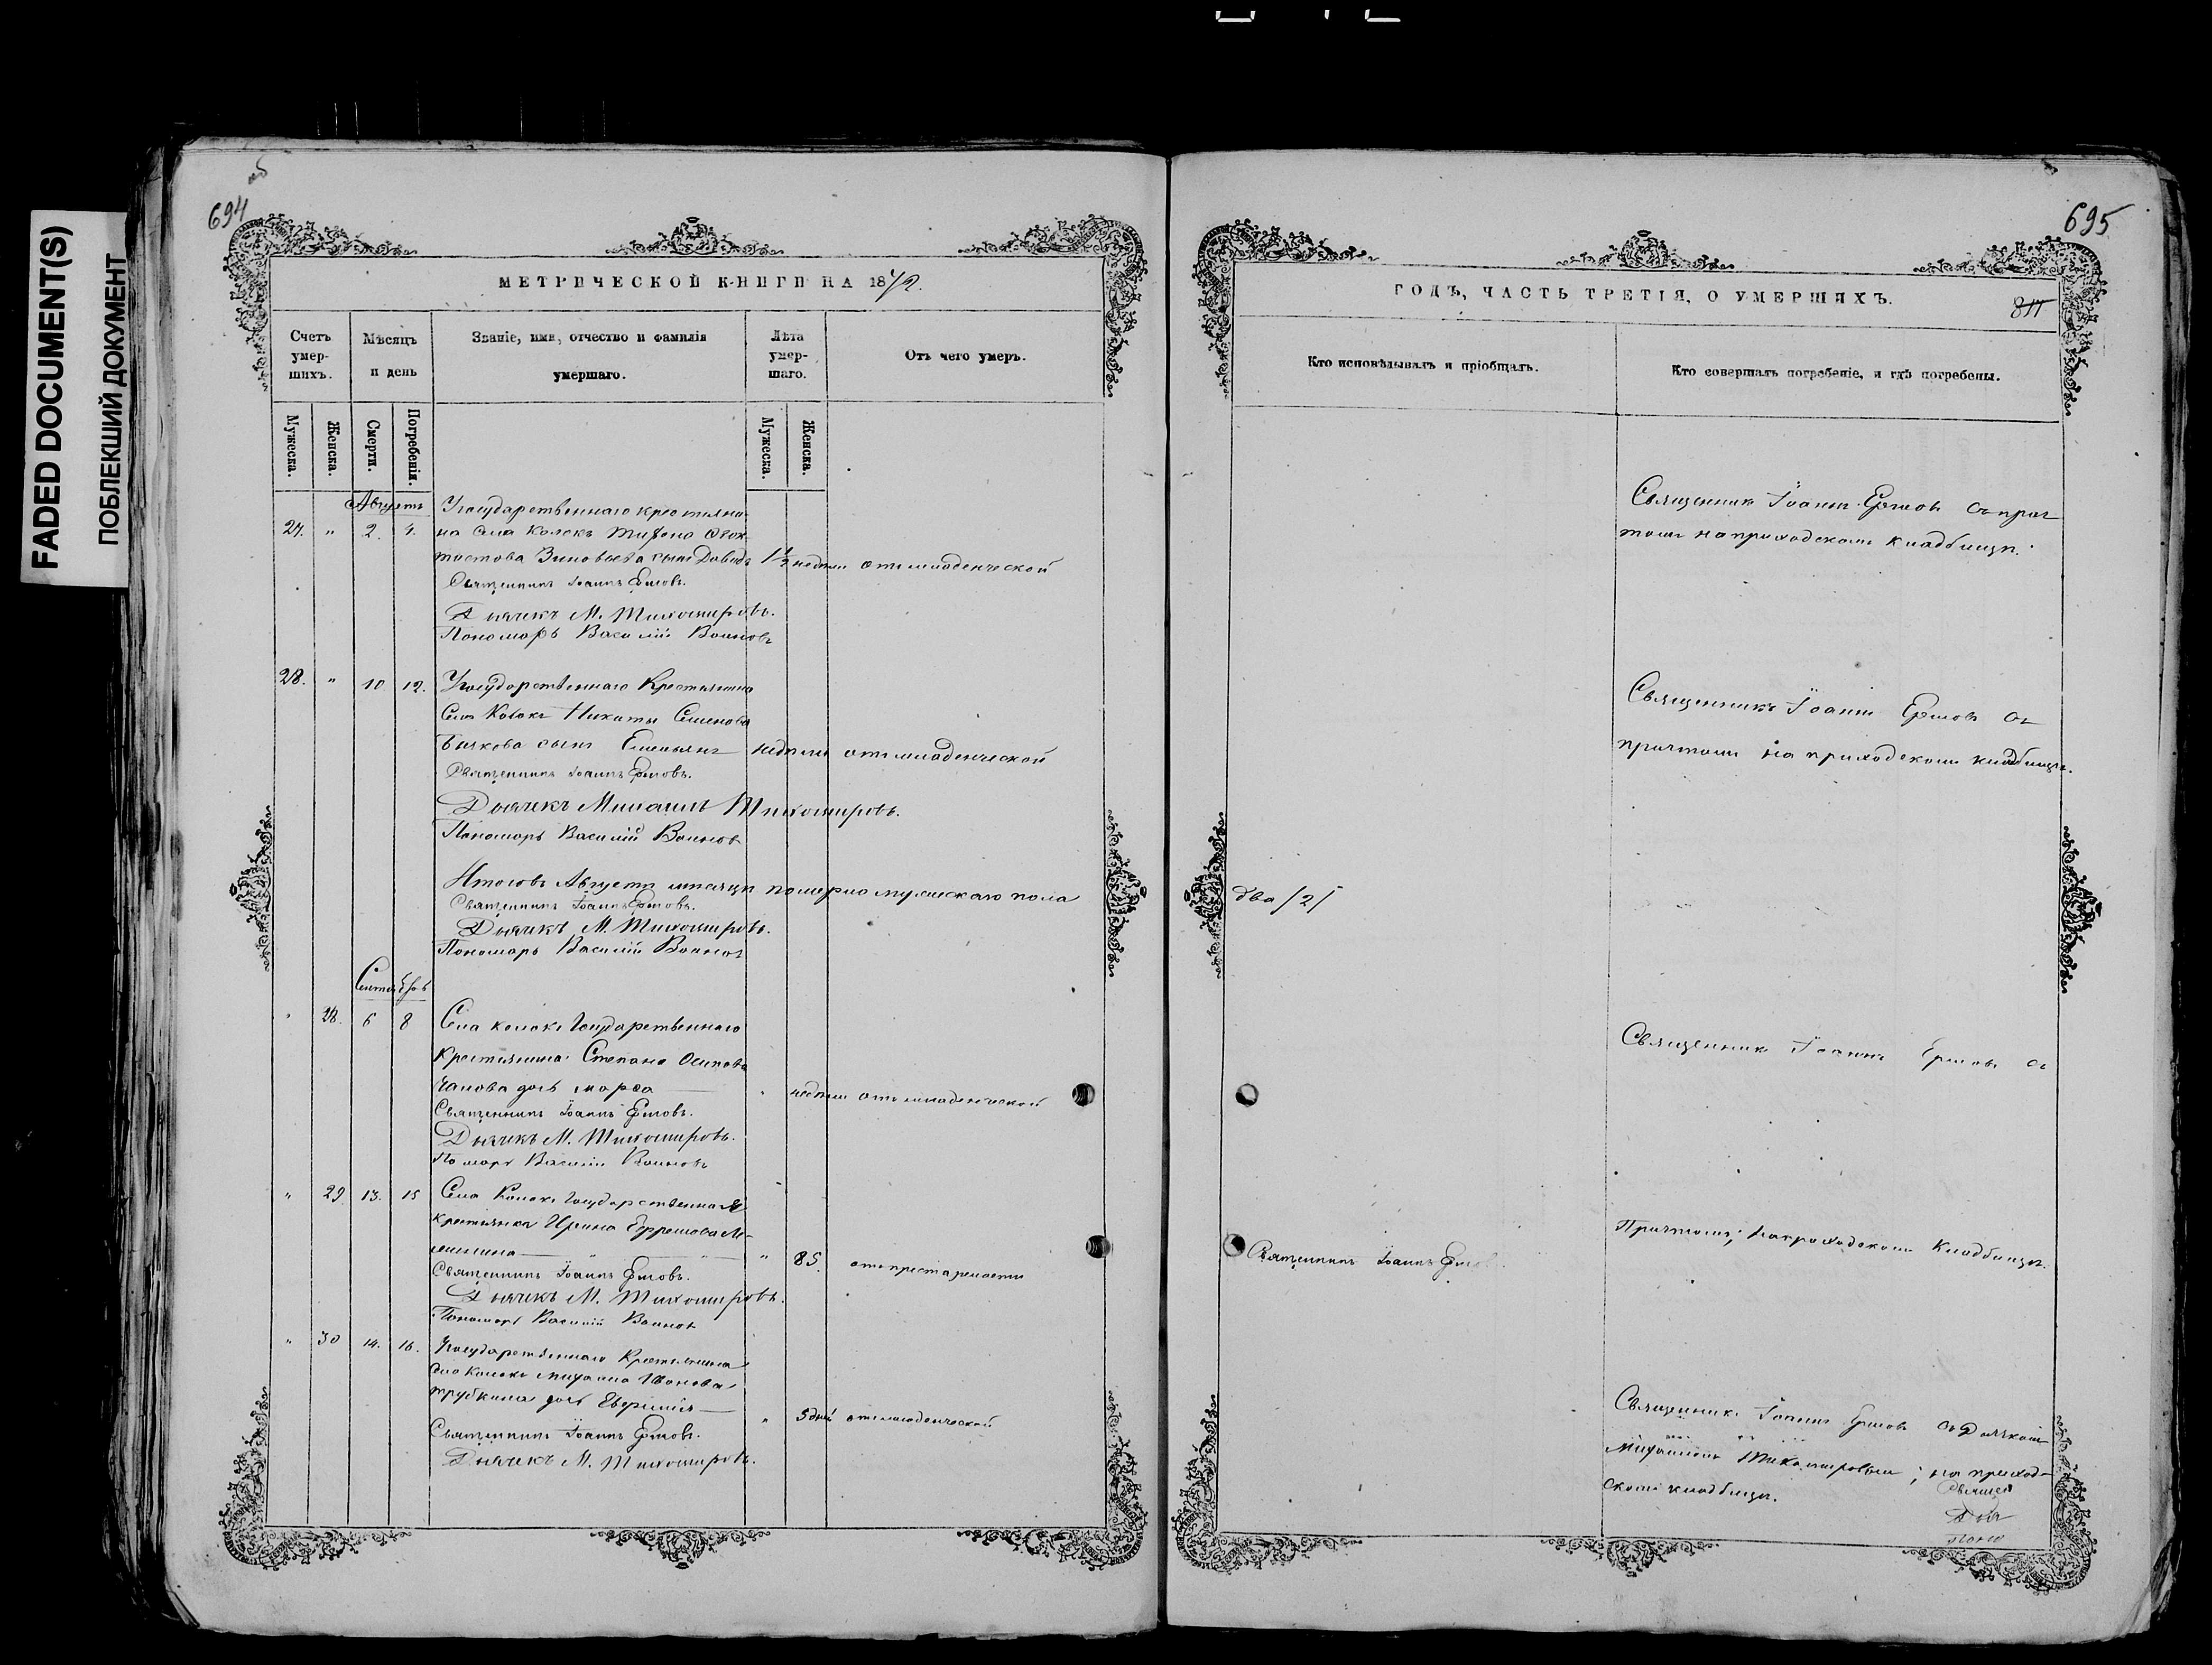 FADED DOCUMENT(S)
ПОБЛЕКШИЙ ДОКУМЕНТ
694
МЕТРИЧЕСКОЙ КНИГИ НА 1872.
Счетъ умер-шихъ.
Мѣсяцъ и день
Званіе, имя, отчество и фамилія умершаго.
Лѣта умер-шаго.
Отъ чего умеръ.
Мужеска.
Женска.
Смерти.
Погребенія.
Мужеска.
Женска.
Августъ
Угосударственнаго крестьяни-
27. " 2. 4. на села Колокъ
Зиновьева сынъ Давидъ 1½ недели отъ младенческой
Священникъ Іоаннъ Ершовъ.
Дьячекъ М. Тихомировъ.
Пономарь Василій Воиновъ
28. " 10 12. Угосударственнаго Крестьянина
Села Колокъ Никиты Семенова
Бычкова сынъ Емельянъ недели отъ младенческой
Священникъ Іоаннъ Ершовъ.
Дьячекъ Михаилъ Тихомировъ.
Пономарь Василій Воиновъ
Итого въ Августѣ мѣсяцѣ померло мужескаго пола
Священникъ Іоаннъ Ершовъ.
Дьячекъ М. Тихомировъ.
Пономарь Василій Воиновъ
Сентябрь
" 28. 6 8 Села колокъ Государственнаго
Крестьянина Степана Осипова
дочь марфа " недели отъ младенческой
Священникъ Іоаннъ Ершовъ.
Дьячекъ М. Тихомировъ.
Василій Воиновъ
" 29 13. 15 Села Колокъ Государственная
крестьянка Ирина Ефремова
" 85. отъ престарелости
Священникъ Іоаннъ Ершовъ.
Дьячекъ М. Тихомировъ.
Пономарь Василій Воиновъ
" 30 14. 16. Угосударственнаго Крестьянина
села Колокъ михаила Иванова
трубкина дочь " 5 дней отъ младенческой
Священникъ Іоаннъ Ершовъ.
Дьячекъ М. Тихомировъ.
695
ГОДЪ, ЧАСТЬ ТРЕТІЯ, О УМЕРШИХЪ.
Кто исповѣдывалъ и пріобщалъ.
Кто совершалъ погребеніе, и гдѣ погребены.
Священникъ Іоаннъ Ершовъ съ прич
томъ на приходскомъ кладбищѣ.
Священникъ Іоаннъ Ершовъ съ
причтомъ на приходскомъ кладбищѣ.
два /2/
Священникъ Іоаннъ Ершовъ съ
Причтомъ; на приходскомъ Кладбищѣ.
Священникъ Іоаннъ Ершовъ
Священникъ Іоаннъ Ершовъ съ Дьячкомъ
Михаиломъ Тихомировымъ; на приход-
скомъ кладбищѣ.
Священ
Дья
Поно